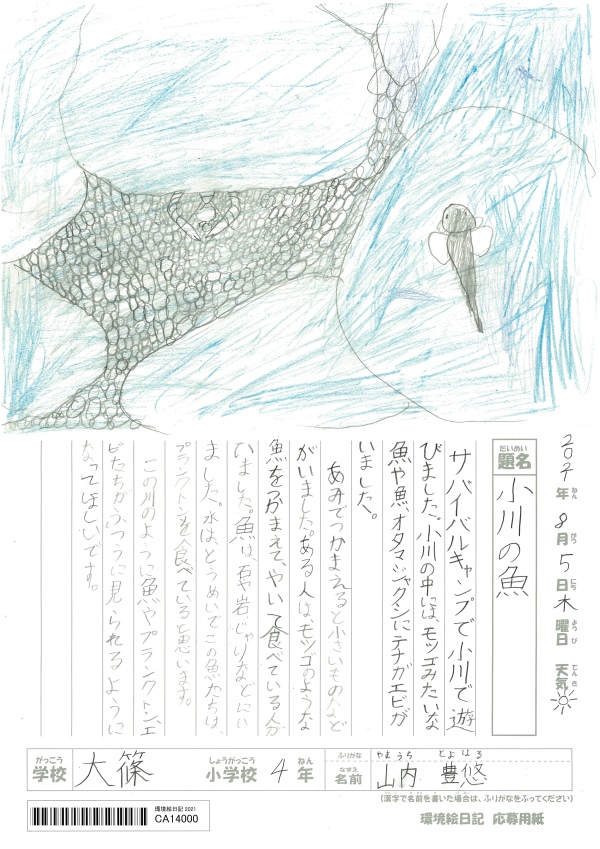 2021年ねん8月がつ5日にち木曜日ようび天気てんき
題名だいめい
小川の魚
サバイバルキャンプで小川で遊
びました。小川の中には、モツゴみたいな
魚や魚、オタマジャクシにテナガエビが
いました。
あみでつかまえると小さいものなど
がいました。ある人は、モツゴのような
魚をつかまえて、やいて食べている人が
いました。魚は、石や岩、じゃりなどにい
ました。水は、とうめいで、この魚たちは、
プランクトンを食べていると思います。
この川のように魚やプランクトン、エ
ビたちがふつうに見られるように
なってほしいです。
がっこう
学校
大篠
しょうがっこう
小学校
4
ねん
年
ふりがな
やまうち とよはる
なまえ
名前
山内 豊悠
(漢字で名前を書いた場合は、ふりがなをふってください)
環境絵日記 2021
CA14000
環境絵日記 応募用紙